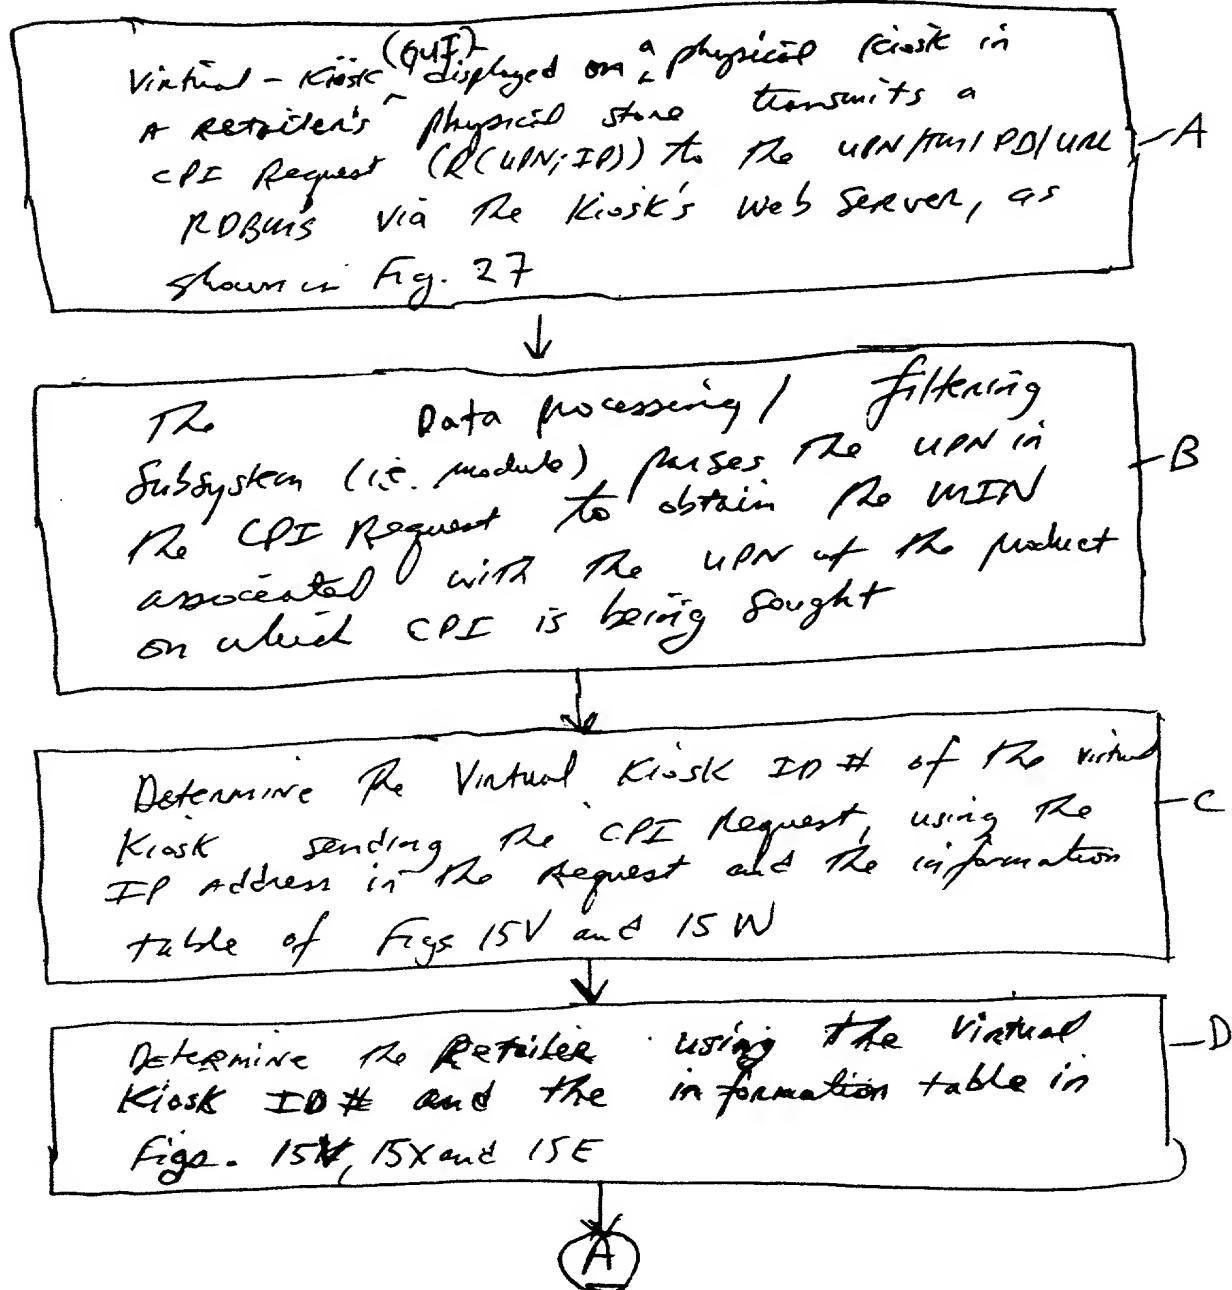 (GUI)
Virtual-Kiosk ^ displayed on ^a physical kiosk in
A Retailer's physical store transmits a
CPI Request (R(UPN;IP)) to the UPN/TM/PD/URL
RDBMS via the Kiosk's Web Server, as
shown in Fig. 27
A
The Data processing / filtering
Subsystem (i.e. module) parses the UPN in
the CPI Request to obtain the MIN
associated with the UPN of the product
on which CPI is being sought
B
Determine the Virtual Kiosk ID # of the virtual
Kiosk sending the CPI Request, using the
IP Address in the Request and the information
table of Figs 15V and 15W
C
Determine the Retailer using the Virtual
Kiosk ID # and the information table in
Figs. 15 , 15X and 15E
D
A